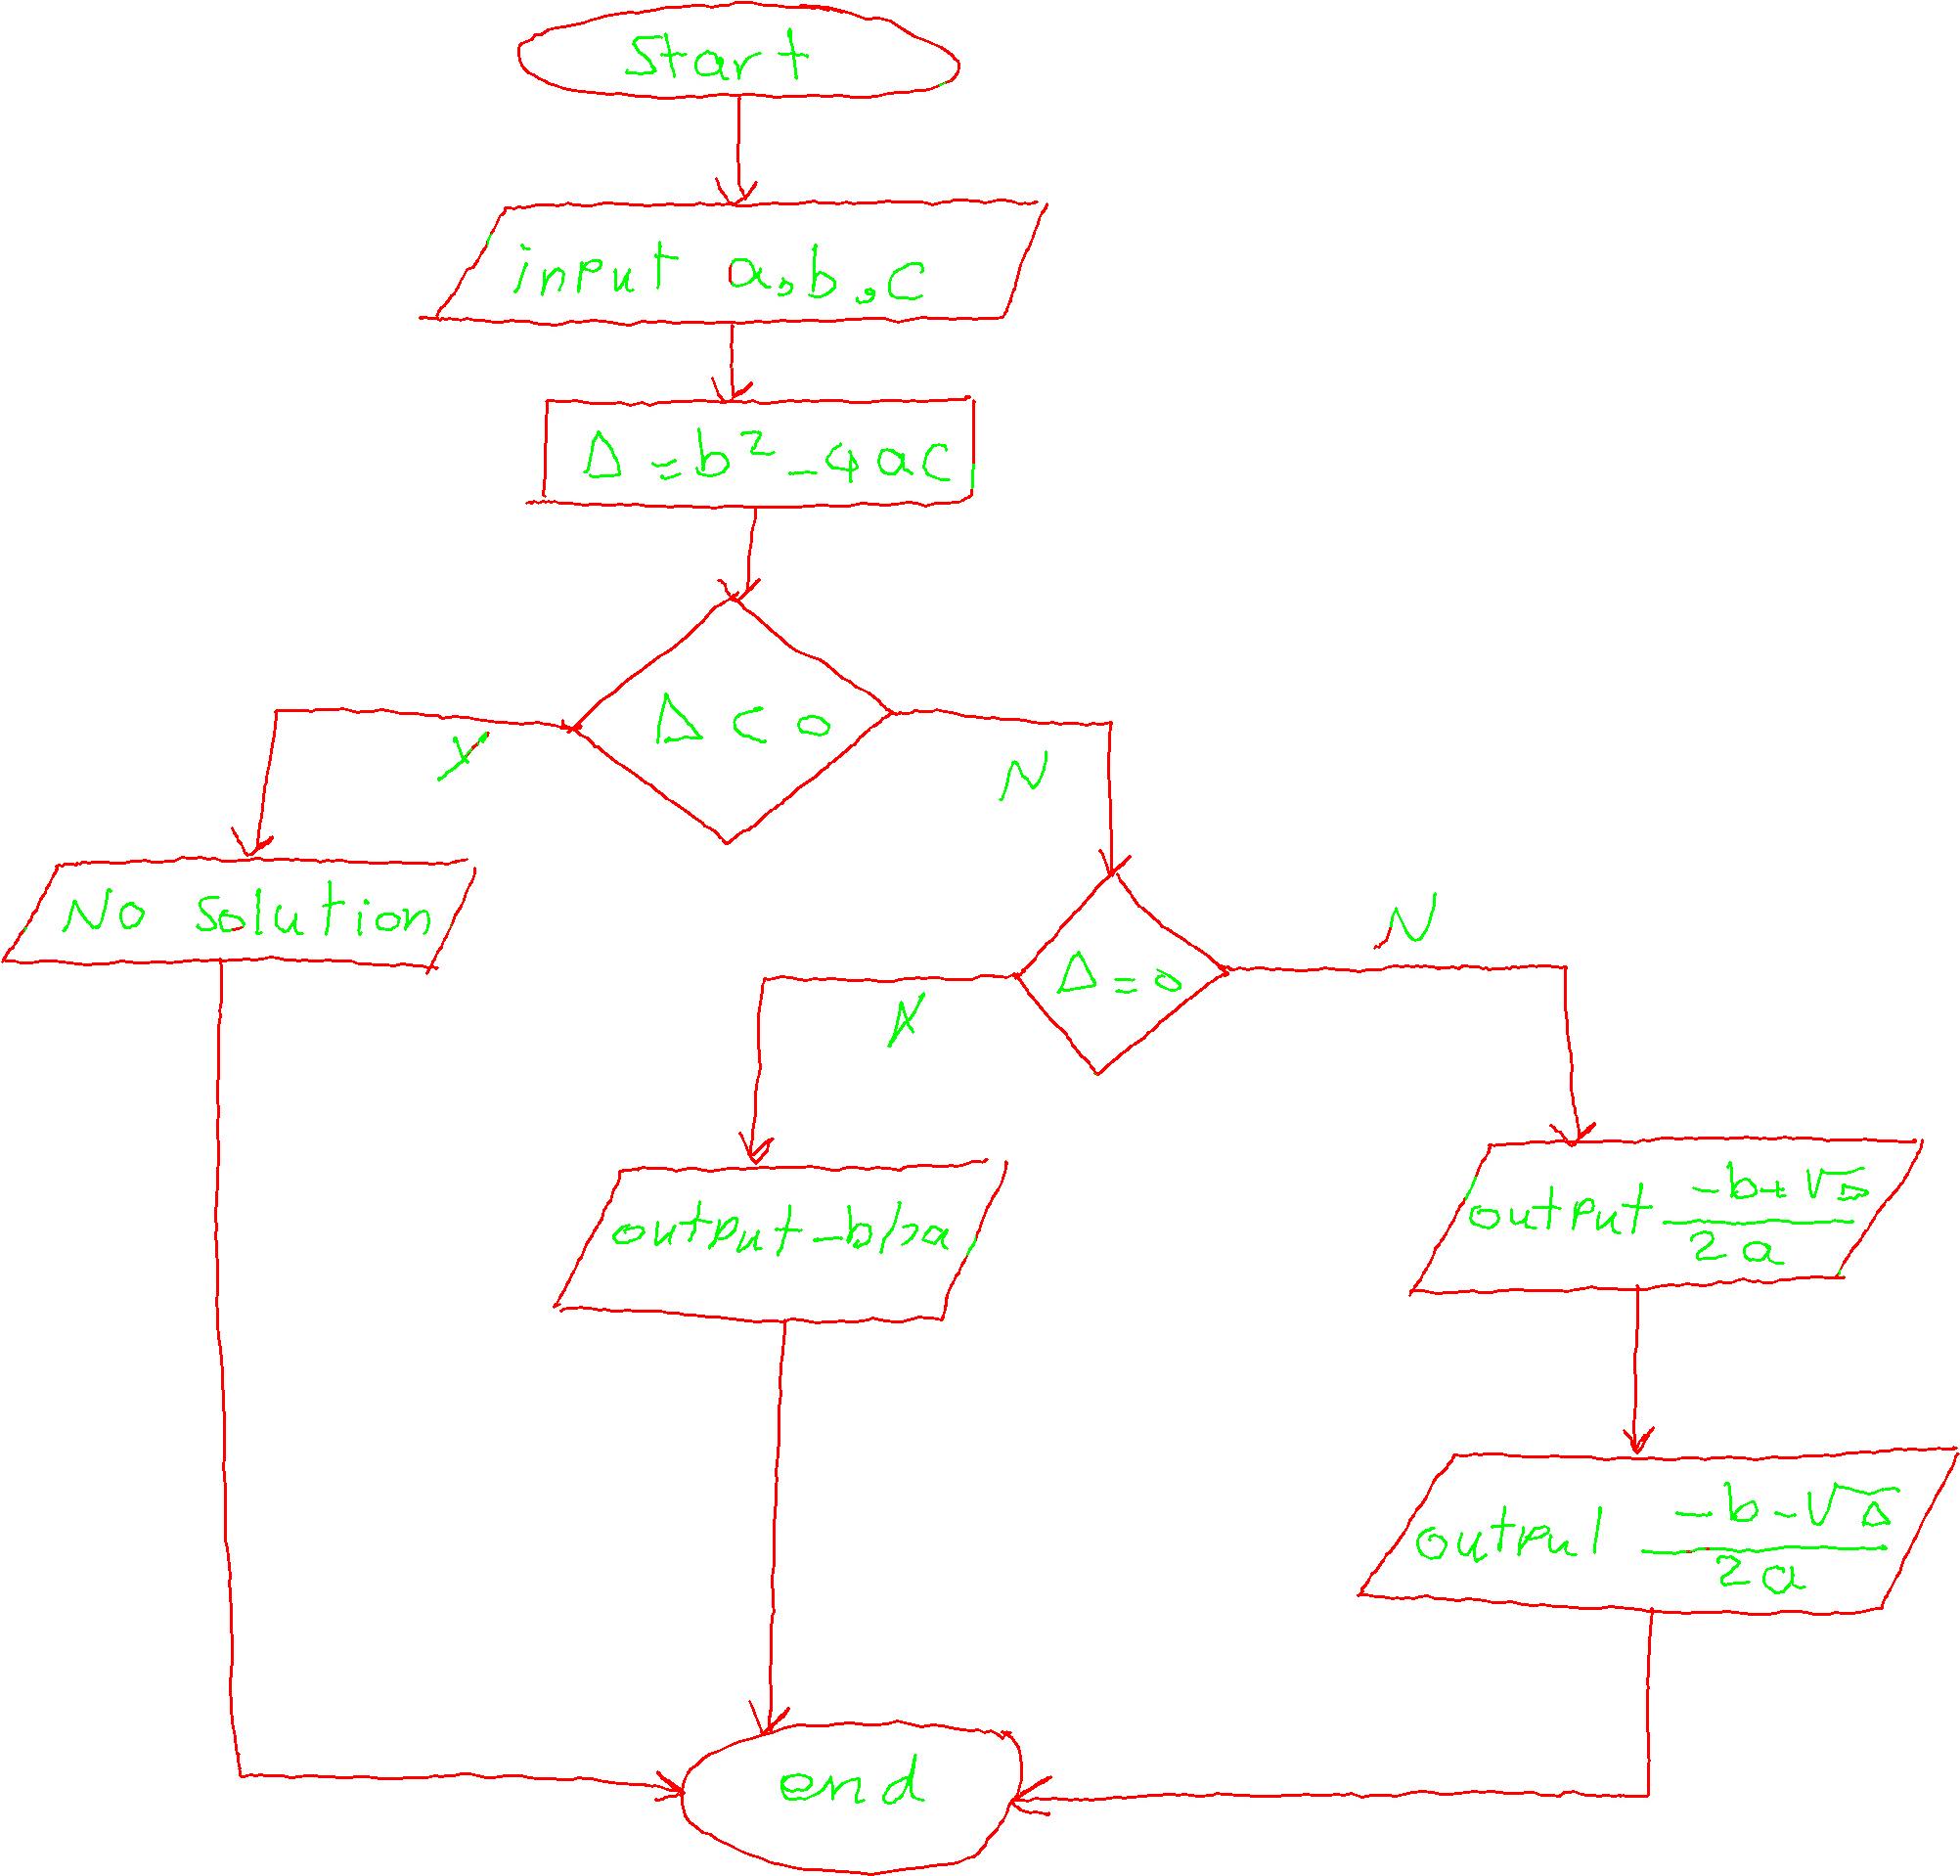 Start
input a,b,c
Δ=b²-4ac
Δ<0
Y
N
No solution
N
Δ=0
output -b/2a
output (-b+√Δ)/2a
output (-b-√Δ)/2a
end